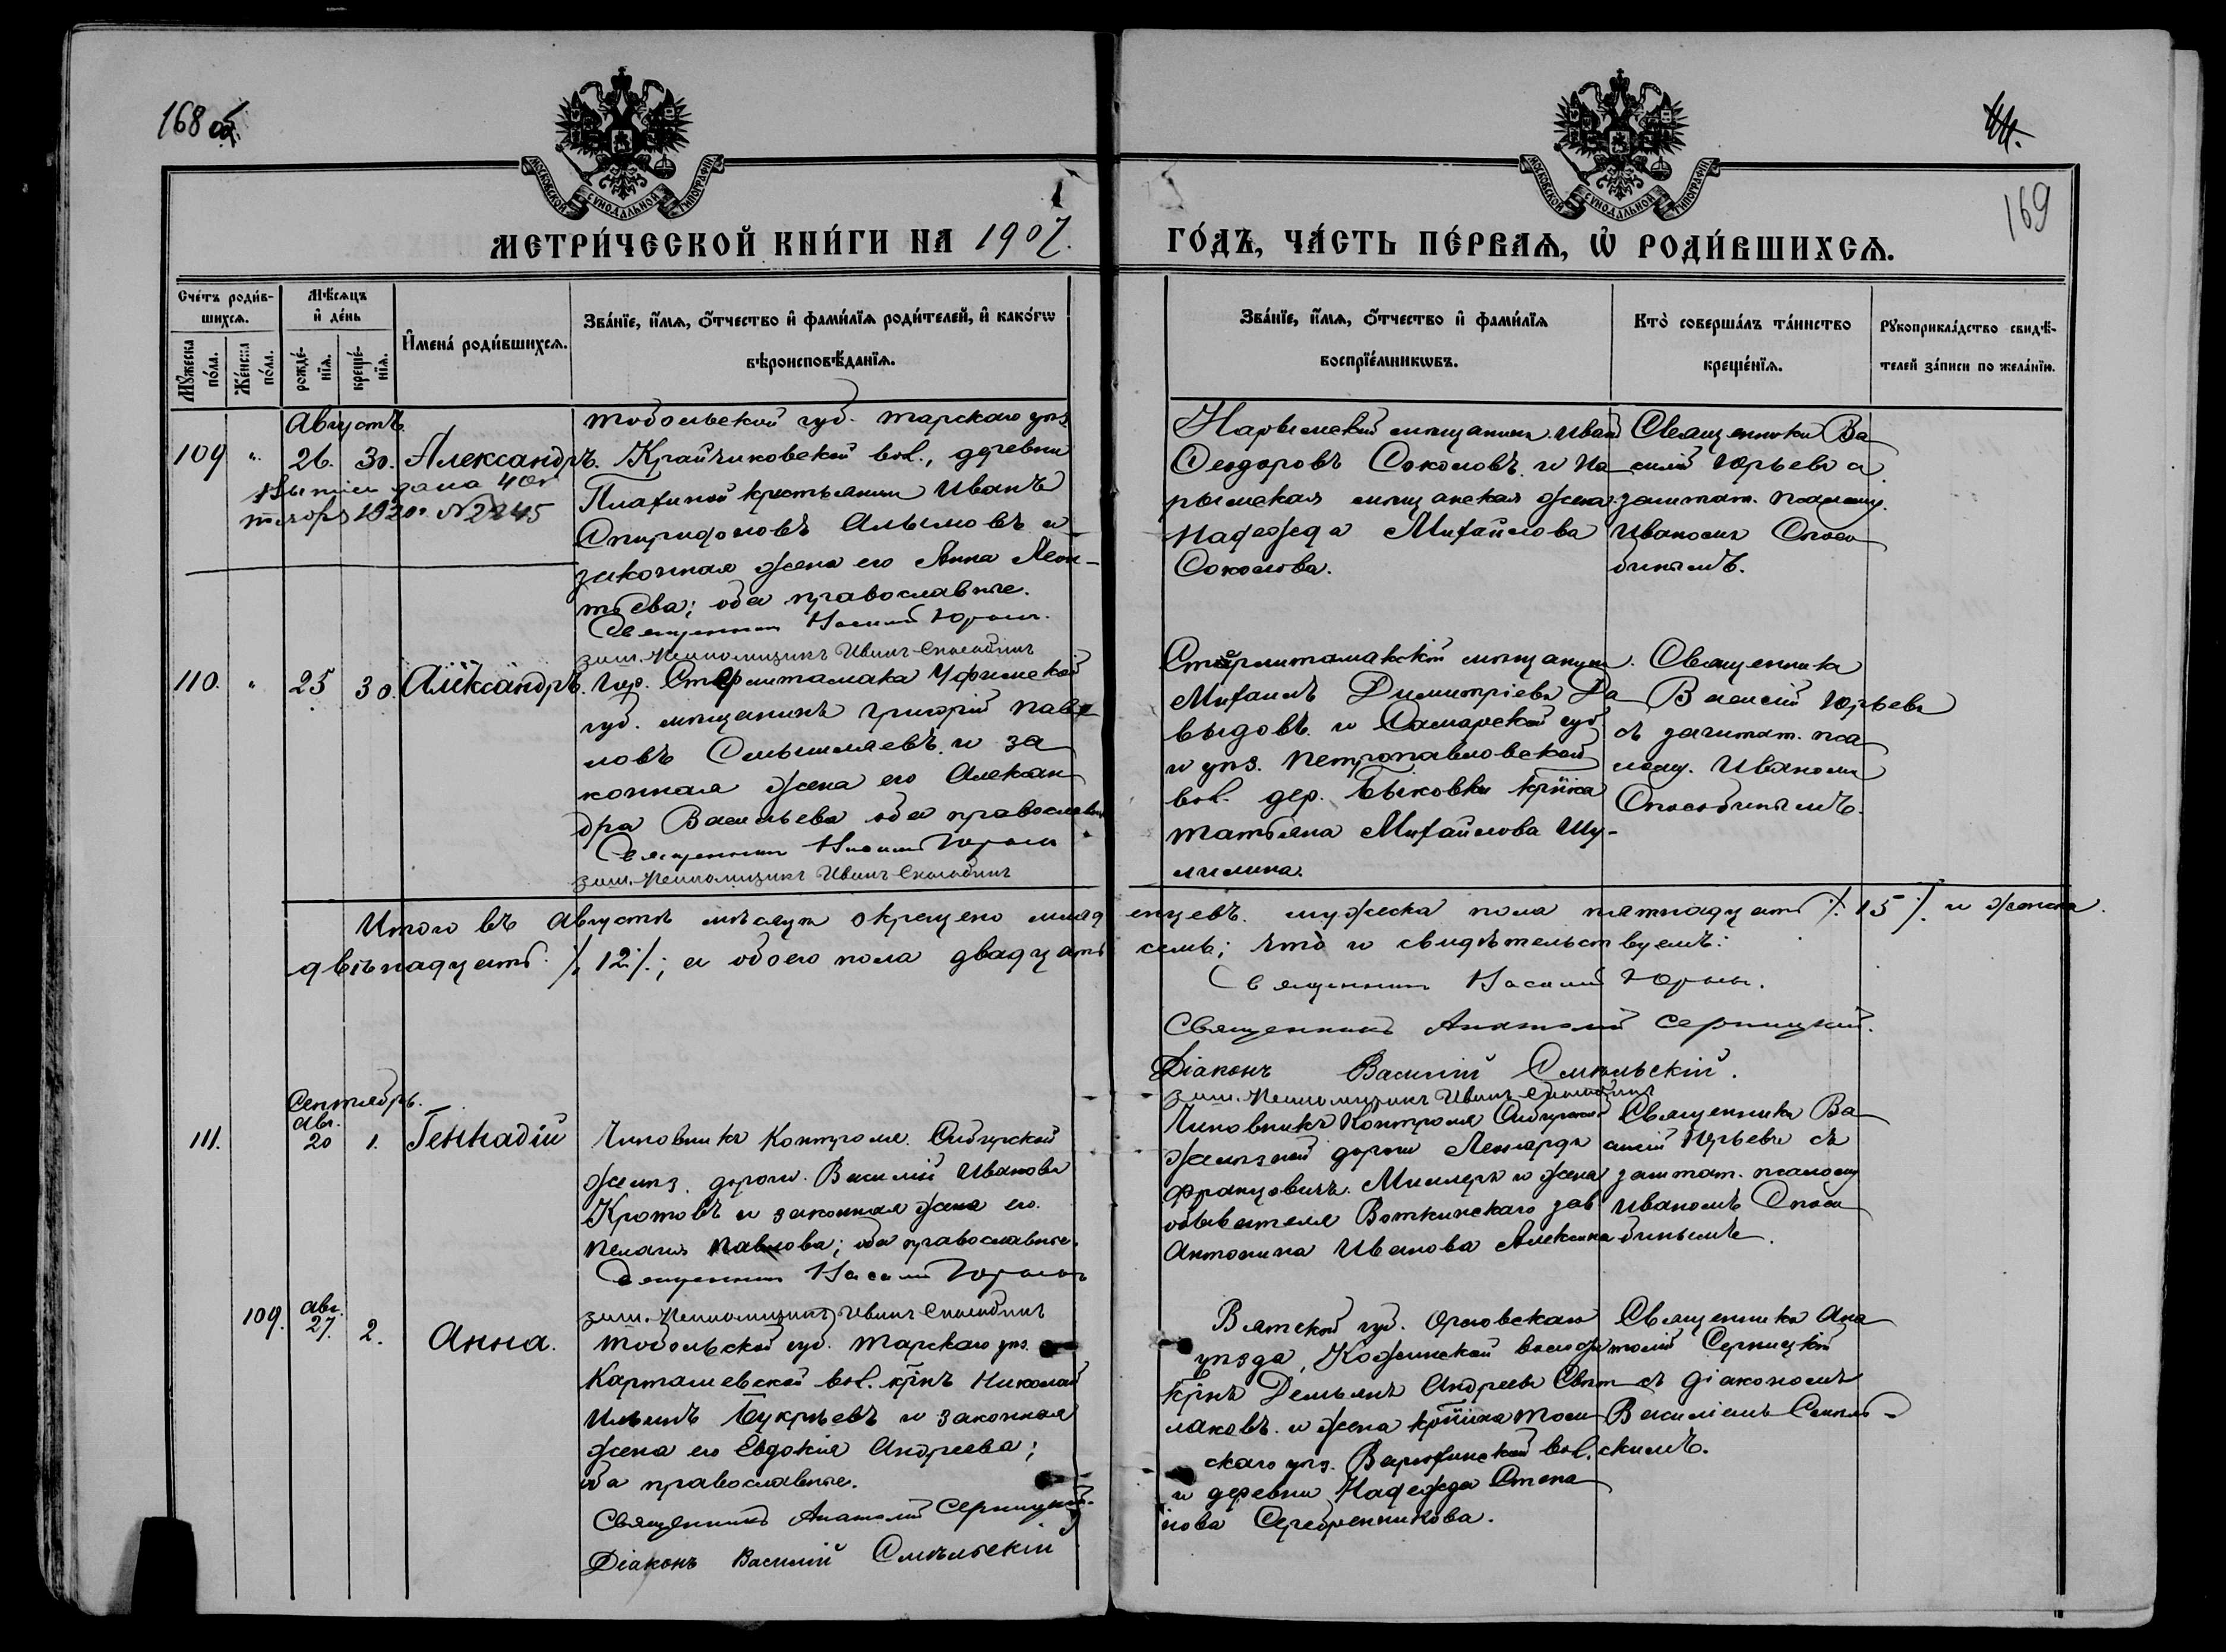 168 об.
169
МОСКОВСКОЙ СУНОДАЛЬНОЙ ТИПОГРАФІИ
МОСКОВСКОЙ СУНОДАЛЬНОЙ ТИПОГРАФІИ
МЕТРИ́ЧЕСКОЙ КНИ́ГИ НА 1907. ГО́ДЪ, ЧА́СТЬ ПЕ́РВАѦ, Ѿ РОДИ́ВШИХСѦ.
Сче́тъ роди́в-
шихсѧ.
Мꙋжеска по́ла.
Же́нска по́ла.
Мѣ́сѧцъ
и҆ де́нь
рожде́-
нїѧ.
креще́-
нїѧ.
И҆мена́ роди́вшихсѧ.
Зва́нїе, и҆́мѧ, о҆́тчество и҆ фами́лїѧ роди́телей, и҆ како́гѡ
вѣроисповѣ́данїѧ.
Зва́нїе, и҆́мѧ, о҆́тчество и҆ фами́лїѧ
воспрїе́мникѡвъ.
Кто̀ соверша́лъ та́инство
креще́нїѧ.
Рꙋкоприкла́дство свидѣ́-
телей за́писи по жела́нїю.
Августъ.
109 " 26. 30. Александръ.
дана
1920 № 2245
Тобольской губ. Тарскаго уѣз.
Крайчиковской вол., деревни
крестьянинъ Иванъ
Спиридоновъ Алымовъ и
законная жена его Анна Леон-
тьева; оба православные.
Священникъ Василій Юрьевъ.
заш. псаломщикъ Иванъ Способинъ
Нарымскій мѣщанинъ Иванъ
Ѳеодоровъ Соколовъ и На-
рымская мѣщанская жена
Надежда Михайлова
Соколова.
Священникъ Ва-
силій Юрьевъ с
заштат. псаломщ.
Иваномъ Спосо-
бинымъ.
110. " 25 30. Александръ.
Гор. Стерлитамака Уфимской
губ. мѣщанинъ Григорій Пав-
ловъ Смышляевъ и за-
конная жена его Алексан-
дра Васильева оба православн
Священникъ Василій Юрьевъ
заш. псаломщикъ Иванъ Способинъ
Стерлитамакскій мѣщанинъ
Михаилъ Димитріевъ Да-
выдовъ и Самарской губ.
и уѣз. Петропавловской
вол. дер. Быковки кр̃нка
Татьяна Михайлова Шу-
милина.
Священникъ
Василій Юрьевъ
съ заштат. пса-
ломщ. Иваномъ
Способинымъ.
Итого въ Августѣ мѣсяцѣ окрещено младенцевъ мужеска пола пятнадцать ./. 15 ./. и женска
двѣнадцать ./. 12 ./.; а обоего пола двадцать семь; что и свидѣтельствуемъ:
Священникъ Василій Юрьевъ.
Священникъ Анатолій Серницкій.
Діаконъ Василій Смѣльскій.
заш. псаломщикъ Иванъ Способинъ
Сентябрь.
111. Авг. 20 1. Геннадій
Чиновникъ Контроля Сибирской
желѣз. дороги Василій Ивановъ
Кротовъ и законная жена его
Пелагія Павлова; оба православные.
Священникъ Василій Юрьевъ
заш. псаломщикъ Иванъ Способинъ
Чиновникъ Контроля Сибирской
желѣзной дороги Леонардъ
Францовичъ Миллеръ и жена
обывателя Воткинскаго зав
Антонина Иванова Алексина
Священникъ Ва-
силій Юрьевъ съ
заштат. псаломщ
Иваномъ Спосо-
бинымъ.
109. Авг. 27. 2. Анна.
Тобольской губ. Тарскаго уѣз.
Карташевской вол. кр̃нъ Николай
Ильинъ Букрѣевъ и законная
жена его Евдокія Андреева;
оба православные.
Священникъ Анатолій Серницкій.
Діаконъ Василій Смѣльскій
Вятской губ. Орловскаго
уѣзда, Кожинской волости
кр̃нъ Демьянъ Андреевъ Свѣт-
лаковъ и жена кр̃нина Том-
скаго уѣз. Варюхинской вол.
и деревни Надежда Степа-
нова Серебренникова.
Священникъ Ана-
толій Серницкій
съ діакономъ
Василіемъ Смѣль-
скимъ.